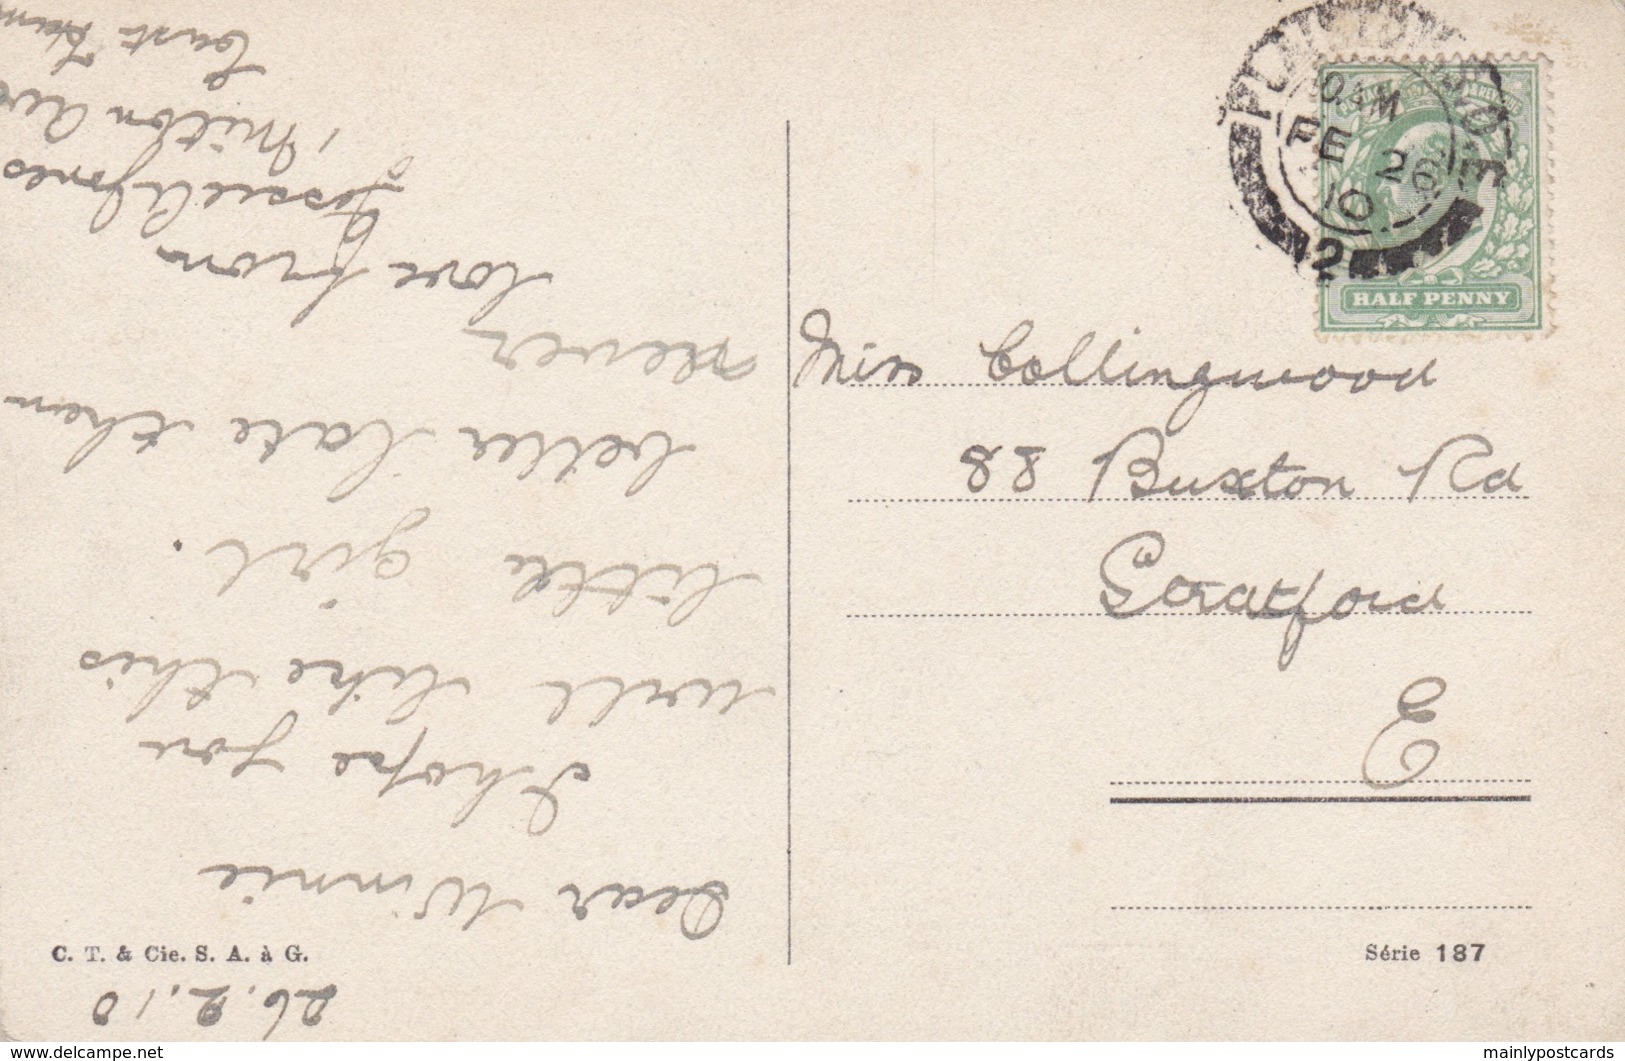 26.2.10
Dear Winnie
I hope you
will like this
little girl.
better late then
never
love from
Jessie A Jones
1, Milton Ave
East Ham
PLAISTOW
10. AM
FE 26
10
E
12
HALF PENNY
Miss Collingwood
88 Buxton Rd
Stratford
E
C. T. & Cie. S. A. à G.
Série 187
www.delcampe.net
mainlypostcards